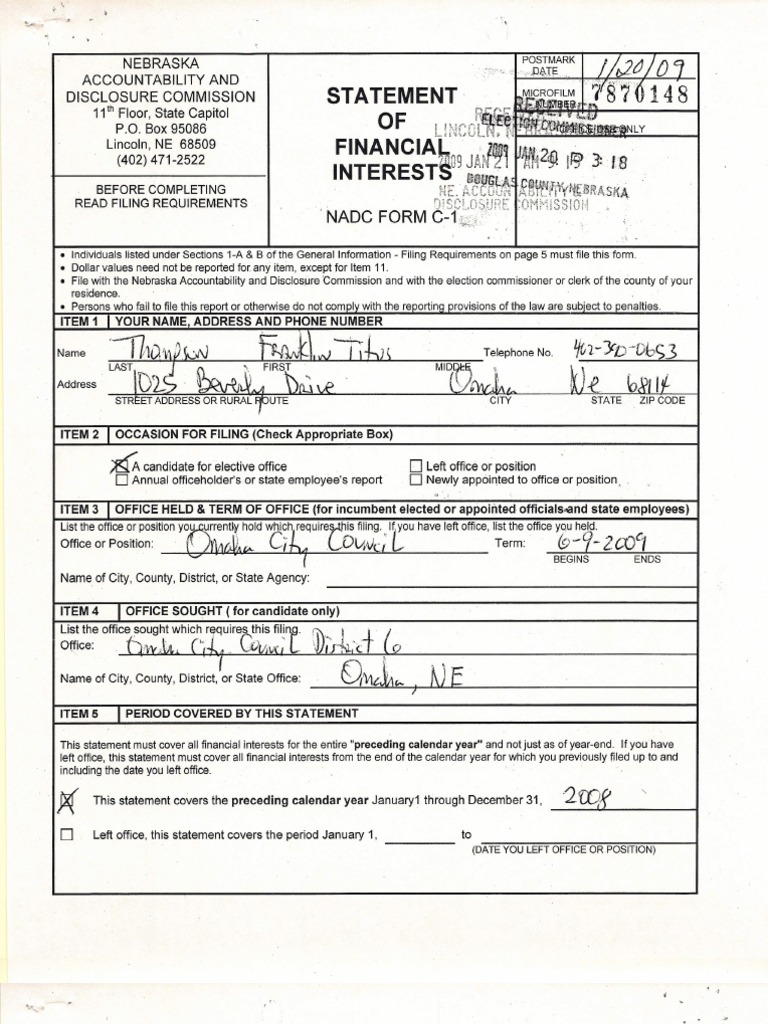 NEBRASKA
ACCOUNTABILITY AND
DISCLOSURE COMMISSION
11th Floor, State Capitol
P.O. Box 95086
Lincoln, NE 68509
(402) 471-2522
BEFORE COMPLETING
READ FILING REQUIREMENTS
STATEMENT
OF
FINANCIAL
INTERESTS
NADC FORM C-1
POSTMARK
DATE
1/20/09
MICROFILM
NUMBER
7870148
RECEIVED
ELECTION COMMISSIONER
2009 JAN 20 P 3:18
DOUGLAS COUNTY, NEBRASKA
LINCOLN,
2009 JAN 21 AM
NE. ACCOUNTABILITY
DISCLOSURE COMMISSION
ONLY
• Individuals listed under Sections 1-A & B of the General Information - Filing Requirements on page 5 must file this form.
• Dollar values need not be reported for any item, except for Item 11.
• File with the Nebraska Accountability and Disclosure Commission and with the election commissioner or clerk of the county of your
residence.
• Persons who fail to file this report or otherwise do not comply with the reporting provisions of the law are subject to penalties.
ITEM 1 YOUR NAME, ADDRESS AND PHONE NUMBER
Name Thompson Franklin Titus Telephone No. 402-390-0653
LAST FIRST MIDDLE
Address 1025 Beverly Drive Omaha Ne 68114
STREET ADDRESS OR RURAL ROUTE CITY STATE ZIP CODE
ITEM 2 OCCASION FOR FILING (Check Appropriate Box)
A candidate for elective office Left office or position
Annual officeholder's or state employee's report Newly appointed to office or position
ITEM 3 OFFICE HELD & TERM OF OFFICE (for incumbent elected or appointed officials and state employees)
List the office or position you currently hold which requires this filing. If you have left office, list the office you held.
Office or Position: Omaha City Council Term: 6-9-2009
BEGINS ENDS
Name of City, County, District, or State Agency:
ITEM 4 OFFICE SOUGHT ( for candidate only)
List the office sought which requires this filing.
Office: Omaha City Council District 6
Name of City, County, District, or State Office: Omaha, NE
ITEM 5 PERIOD COVERED BY THIS STATEMENT
This statement must cover all financial interests for the entire "preceding calendar year" and not just as of year-end. If you have
left office, this statement must cover all financial interests from the end of the calendar year for which you previously filed up to and
including the date you left office.
This statement covers the preceding calendar year January1 through December 31, 2008
Left office, this statement covers the period January 1, to
(DATE YOU LEFT OFFICE OR POSITION)